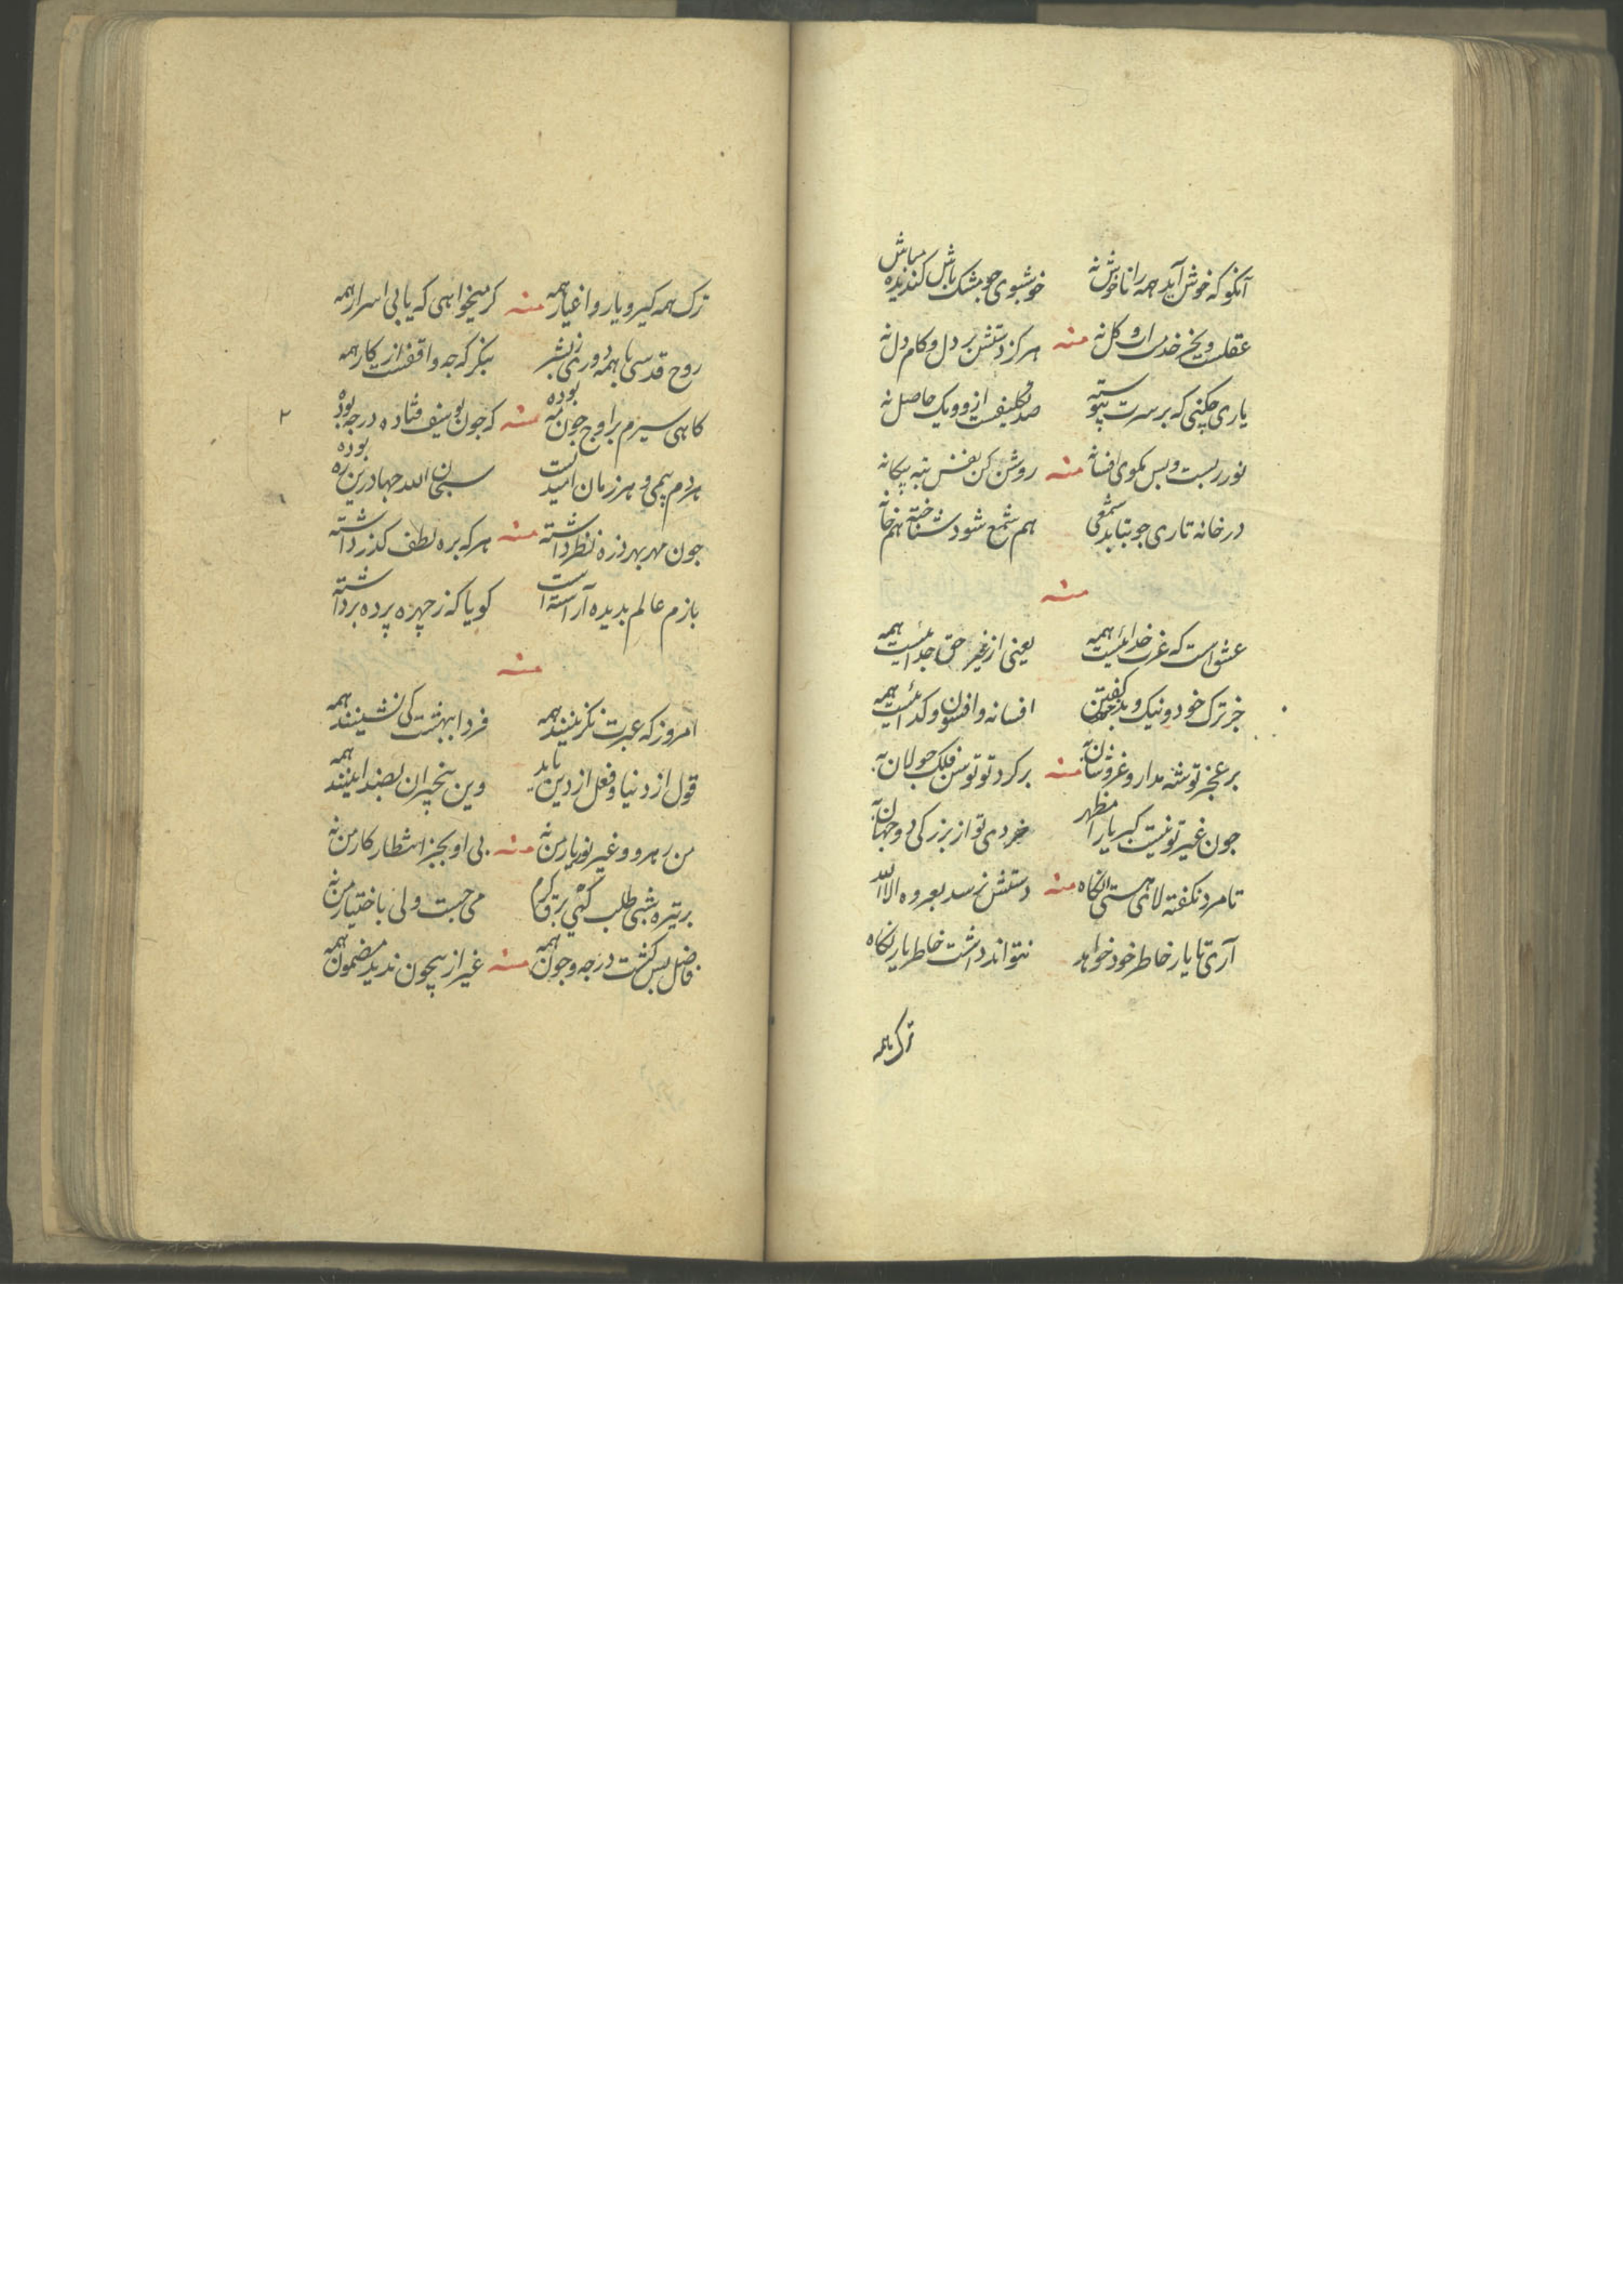 آنکو که خوش آید همه را ناخوش نه خوشبوی چو مشک باش کندیده مباش
عقلست و بجز خدمت او کل نه منه هرکز دستش بر دل و کام دل نه
یاری چکنی که بر سرت پیوسته صد تکلیفست از وو یک حاصل نه
نور ربست و بس مکوی افسانه منه روشن کن نفس نبیه بیکانه
در خانه تاری چو بتابد شمعی هم شمع شود شناخته هم خانه
منه
عشق است که غرب خدائیست همه یعنی از غیر حق جدائیست همه
جز ترک خود و نیک و بد افسانه و افسون و کدائیست همه
بر عجز تو شه مدار و غر و شان نه منه بر کرد تو توسن فلک جولان نه
چون غیر تو نیست کبریا را مظهر خردی تو از بزرکی دو جهان نه
تا مرد نکفته لا ی هستی انکاه منه دستش نرسد بعروه الا الله
آری تا یار خاطر خود خواهد نتواند داشت خاطر یار نکاه
ترک همه
ترک همه کیر و یار و اغیار همه منه کر میخواهی که یابی اسرار همه
روح قدسی با همه دوری ز بشر بنکر که چه واقفست از کار همه
کاهی سیرم بر اوج چون مه بوده منه که چون یوسف فتاده در چه بوده
هر دم بیمی و هر زمان امیدیست سبحان الله چها درین ره بوده
چون مهر بهر ذره نظر داشته منه هر که بره لطف کذر داشته
بازم عالم بدیده آراسته است کویا که ز چهره پرده برداشته
منه
امروز که عبرت نکزینند همه فردا ببهشت کی نشینند همه
قول از دنیا و فعل از دین باید وین بیخبران بضد اینند همه
من رهرو و غیر نور یار من نه منه بی او بجز انتظار کار من نه
بر تیره شبی طلب برق کرم می جست ولی باختیار من نه
فاضل بس کشت در چه و چون همه منه غیر از بیچون ندید مضمون همه